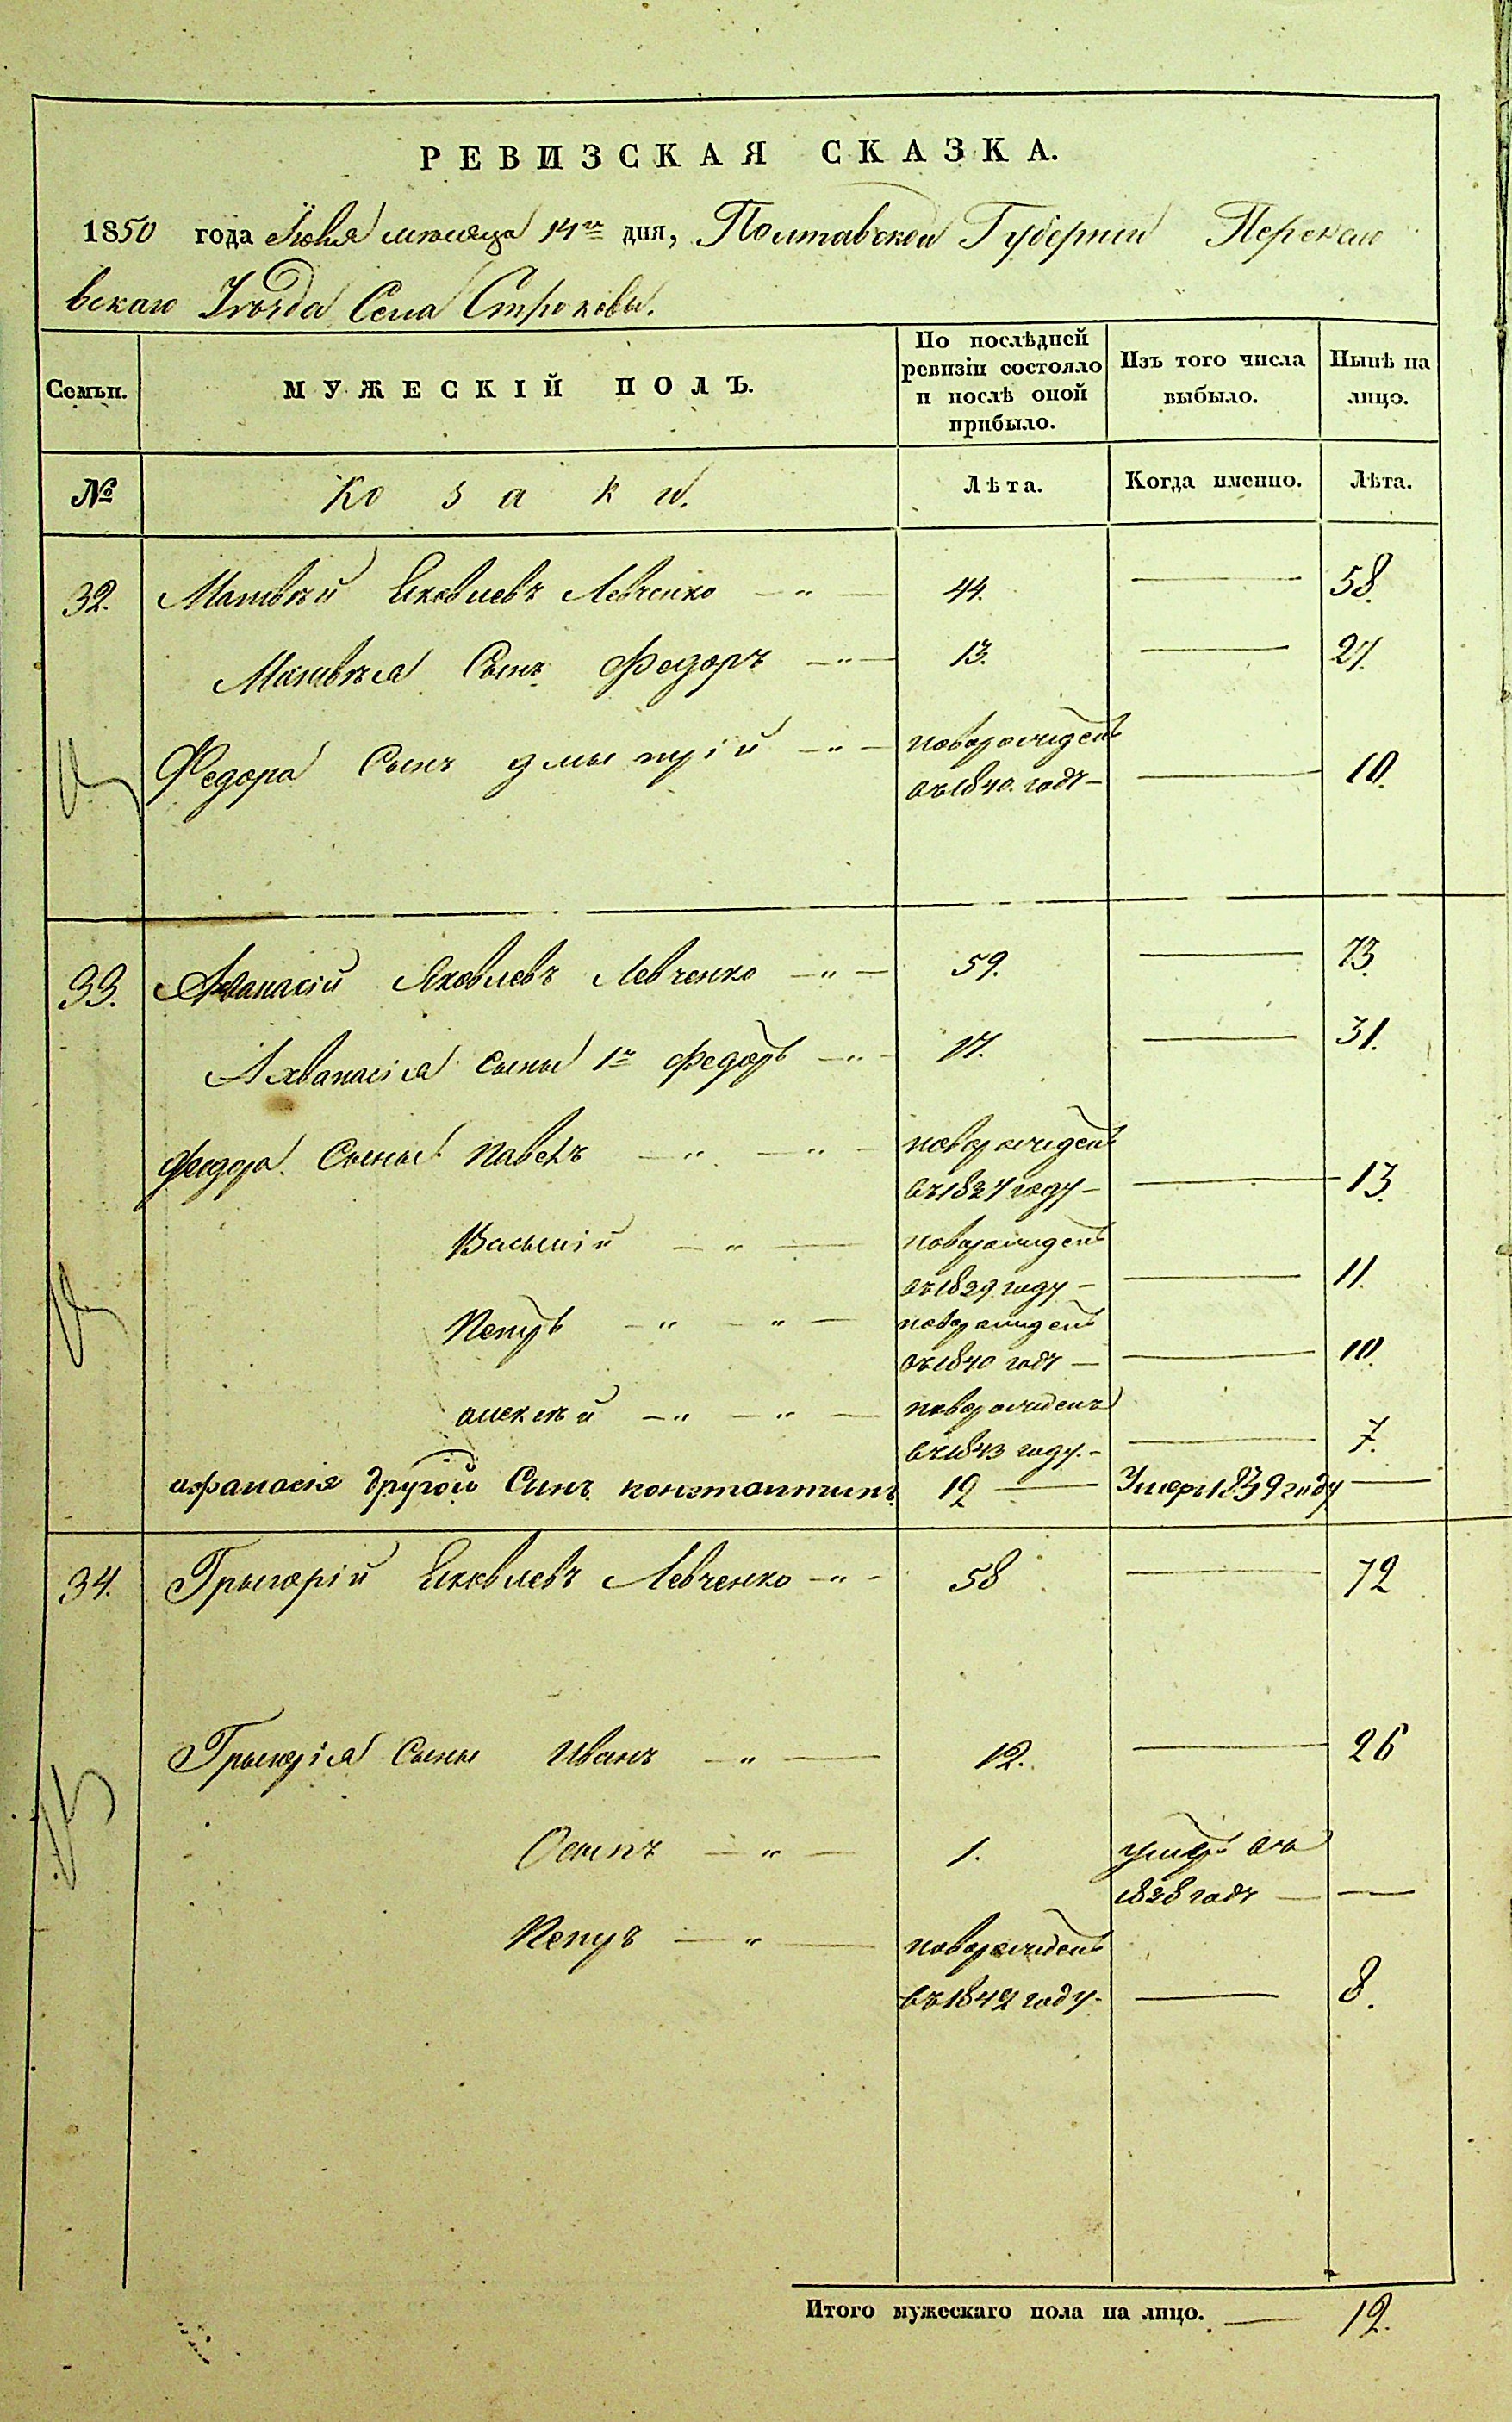 РЕВИЗСКАЯ СКАЗКА.
1850 года Июня месяца 14го дня, Полтавской Губернии
вскаго Уезда Села Строковы.
Семьи. МУЖЕСКІЙ ПОЛЪ. По послѣдней ревизіи состояло и послѣ оной прибыло. Изъ того числа выбыло. Нынѣ на лицо.
№ Козаки. Лѣта. Когда именно. Лѣта.
32. Матвѣй Яковлевъ Левченко — " — 44. — 58.
Матвѣя Сынъ Федоръ — " — 13. — 27.
Федора Сынъ Дмытрій — " — новорожденъ
въ 1840 годѵ — — 10.
33. Ахванасій Яковлевъ Левченко — " — 59. — 73.
Ахванасія сыны 1й Федоръ — " — 17. — 31.
Федора Сыны Павелъ — " — " — новорожденъ
въ 1827 году — — 13.
Васылій — " — новорожденъ
въ 1829 году — — 11.
Петръ — " — " — новорожденъ
въ 1840 годѵ — — 10.
алексѣй — " — " — новорожденъ
въ 1843 году. — — 7.
афанасія другой Синъ константинъ 12 — Умеръ 1839 году —
34. Грыгорій Яковлевъ Левченко — " — 58 — 72
Грыгорія Сыны Иванъ — " — 12. — 26
Осыпъ — " — 1. умеръ въ
1828 годѵ — —
Петръ — " — новорожденъ
въ 1842 году. — 8.
Итого мужескаго пола на лицо. — 12.